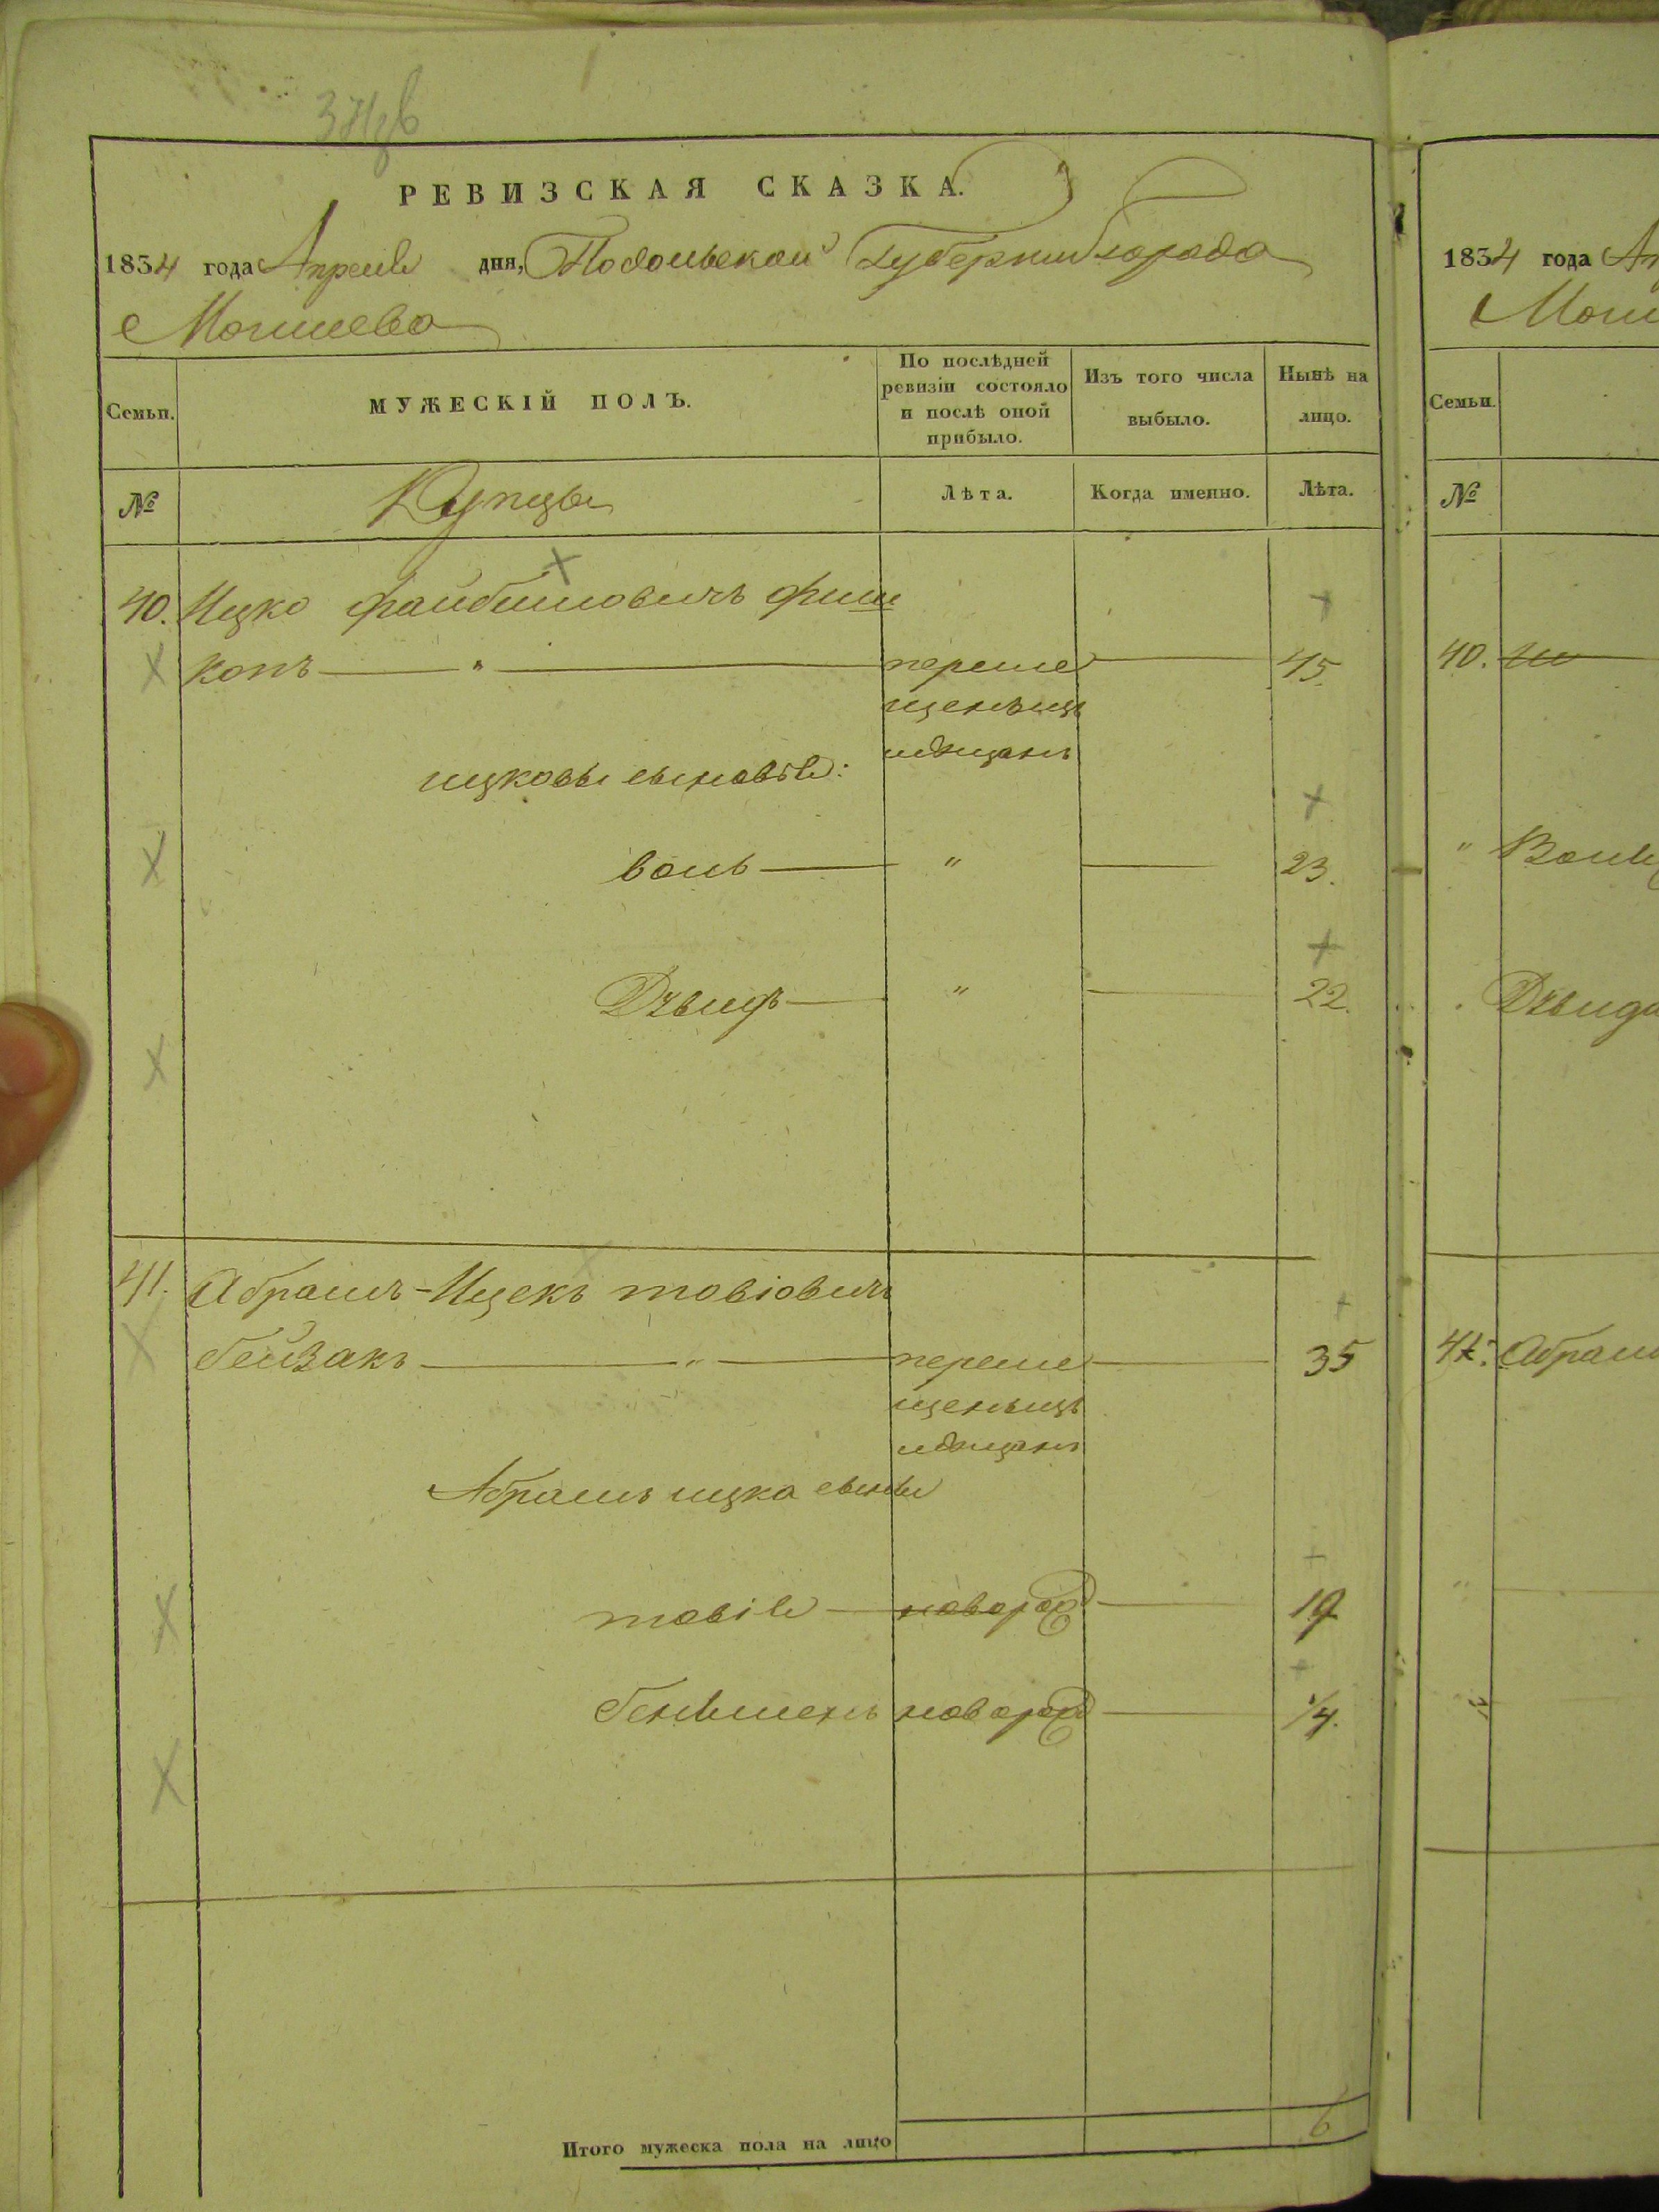 РЕВИЗСКАЯ СКАЗКА.
1834 года Апреля дня, Подольской Губернии города
Могилева
Семьи.
МУЖЕСКІЙ ПОЛЪ.
По послѣдней ревизіи состояло и послѣ оной прибыло.
Изъ того числа выбыло.
Нынѣ на лицо.
№
Купцы
Лѣта.
Когда именно.
Лѣта.
40. Ицко Файбишовичъ Фиш
конъ — " — переме — 45.
щенъ изъ
мѣщанъ
ицковы сыновья:
волъ — " — 23.
Дувидъ — " — 22.
41. Абрамъ-Ицекъ товіовичъ
бейзакъ — " — переме — 35
щенъ изъ
мѣщанъ
Абрамъ ицка сынья
товія — новорож —
беньменъ новорож — 1/4.
Итого мужеска пола на лицо
6
1834 года Ап
Моги
Семьи.
№
40.
"
Дувида
41. Абрам
"
"